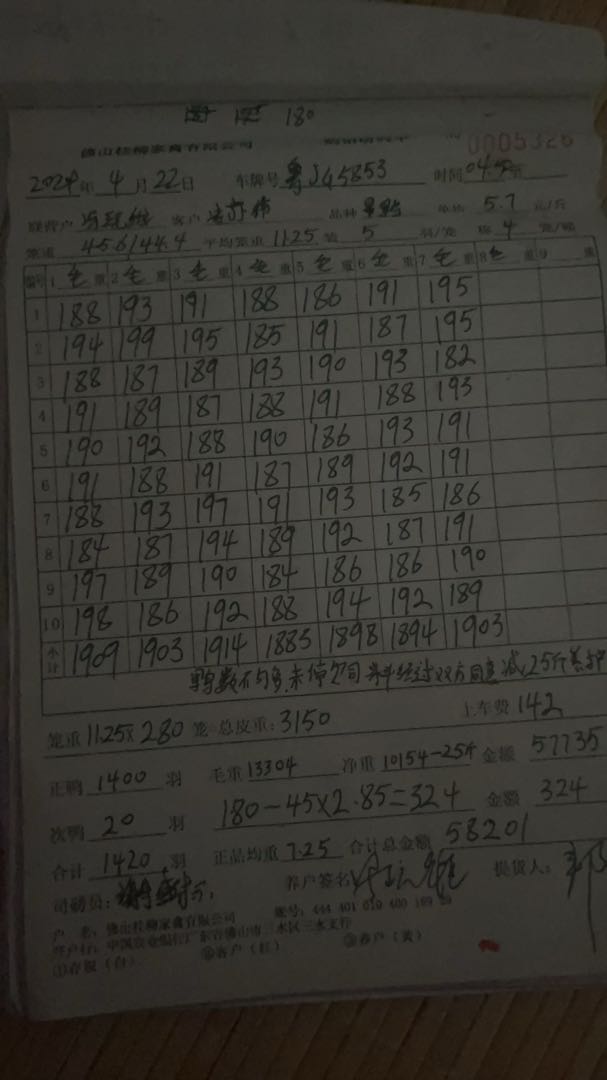 180
佛山桂柳家禽有限公司 0005326
2024年 4月22日 车牌号 粤JG5853 时间
客户 品种 5.7 元/斤
笼重 45.6/44.4 平均笼重 11.25 装 5 羽/笼 称 4 笼/磅
编号 1 毛重 2 毛重 3 毛重 4 毛重 5 毛重 6 毛重 7 毛重 8 毛重 9 重
1 188 193 191 188 186 191 195
2 194 199 195 185 191 187 195
3 188 187 189 193 190 193 182
4 191 189 187 188 191 188 193
5 190 192 188 190 186 193 191
6 191 188 191 187 189 192 191
7 188 193 197 191 193 185 186
8 184 187 194 189 192 187 191
9 197 189 190 184 186 186 190
10 198 186 192 188 194 192 189
小计 1909 1903 1914 1885 1898 1894 1903
双方同意减25斤
笼重 11.25×280 笼 总皮重:3150 上车费 142
正鸭 1400 羽 毛重 13304 净重 10154-25斤 金额 57735
次鸭 20 羽 180-45×2.85=324 金额 324
合计 1420 羽 正品均重 7.25 合计总金额 58201
司磅员: 养户签名 提货人:
户 名:佛山桂柳家禽有限公司 账号:444 401 010 400 189 59
开户行:中国农业银行广东省佛山市三水区三水支行
①存根(白) ②客户(红) ③养户(黄)